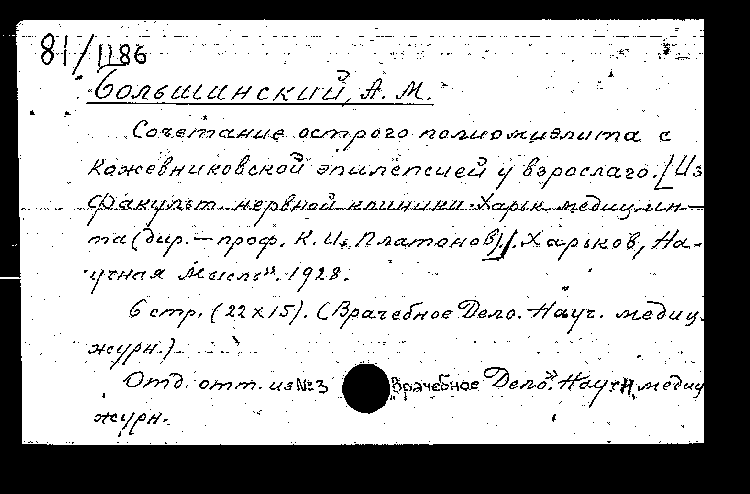 81/1186
Большинский, А. М.
Сочетание острого полиомиэлита с
Кожевниковской эпилепсией у взрослаго. [Из
факульт. нервной клиники Харьк. медиц. ин-
та (дир. — проф. К. И. Платонов)]. Харьков, На-
учная Мысль". 1928.
6 стр. (22х15). (Врачебное Дело. Науч. медиц.
журн.)
Отд. отт. из №3 Врачебное Дело". Науч. медиц
журн.